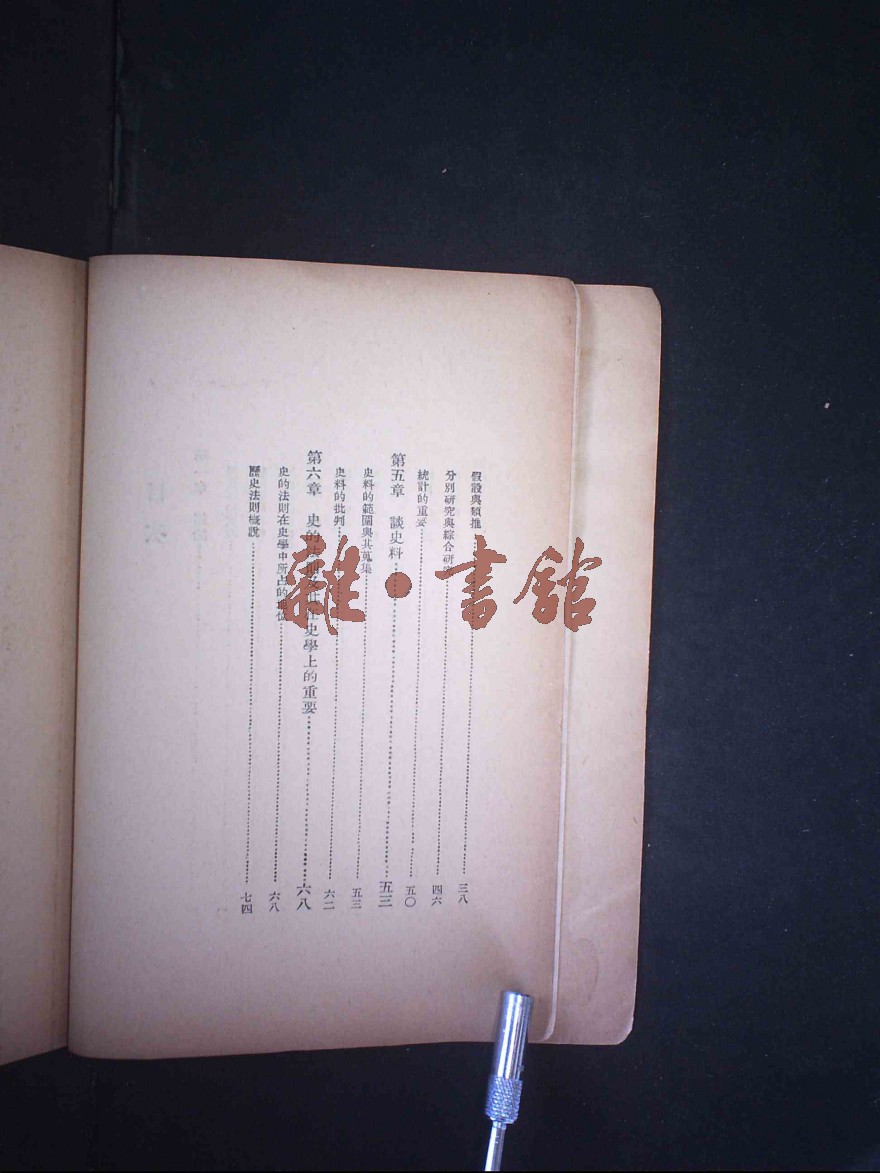 假設與類推……三八
分別研究與綜合研究……四六
統計的重要……五〇
第五章 談史料……五三
史料的範圍與其蒐集……五三
史料的批判……六二
第六章 史的法則及其在史學上的重要……六八
史的法則在史學中所占的地位……六八
歷史法則概說……七四
雜·書館